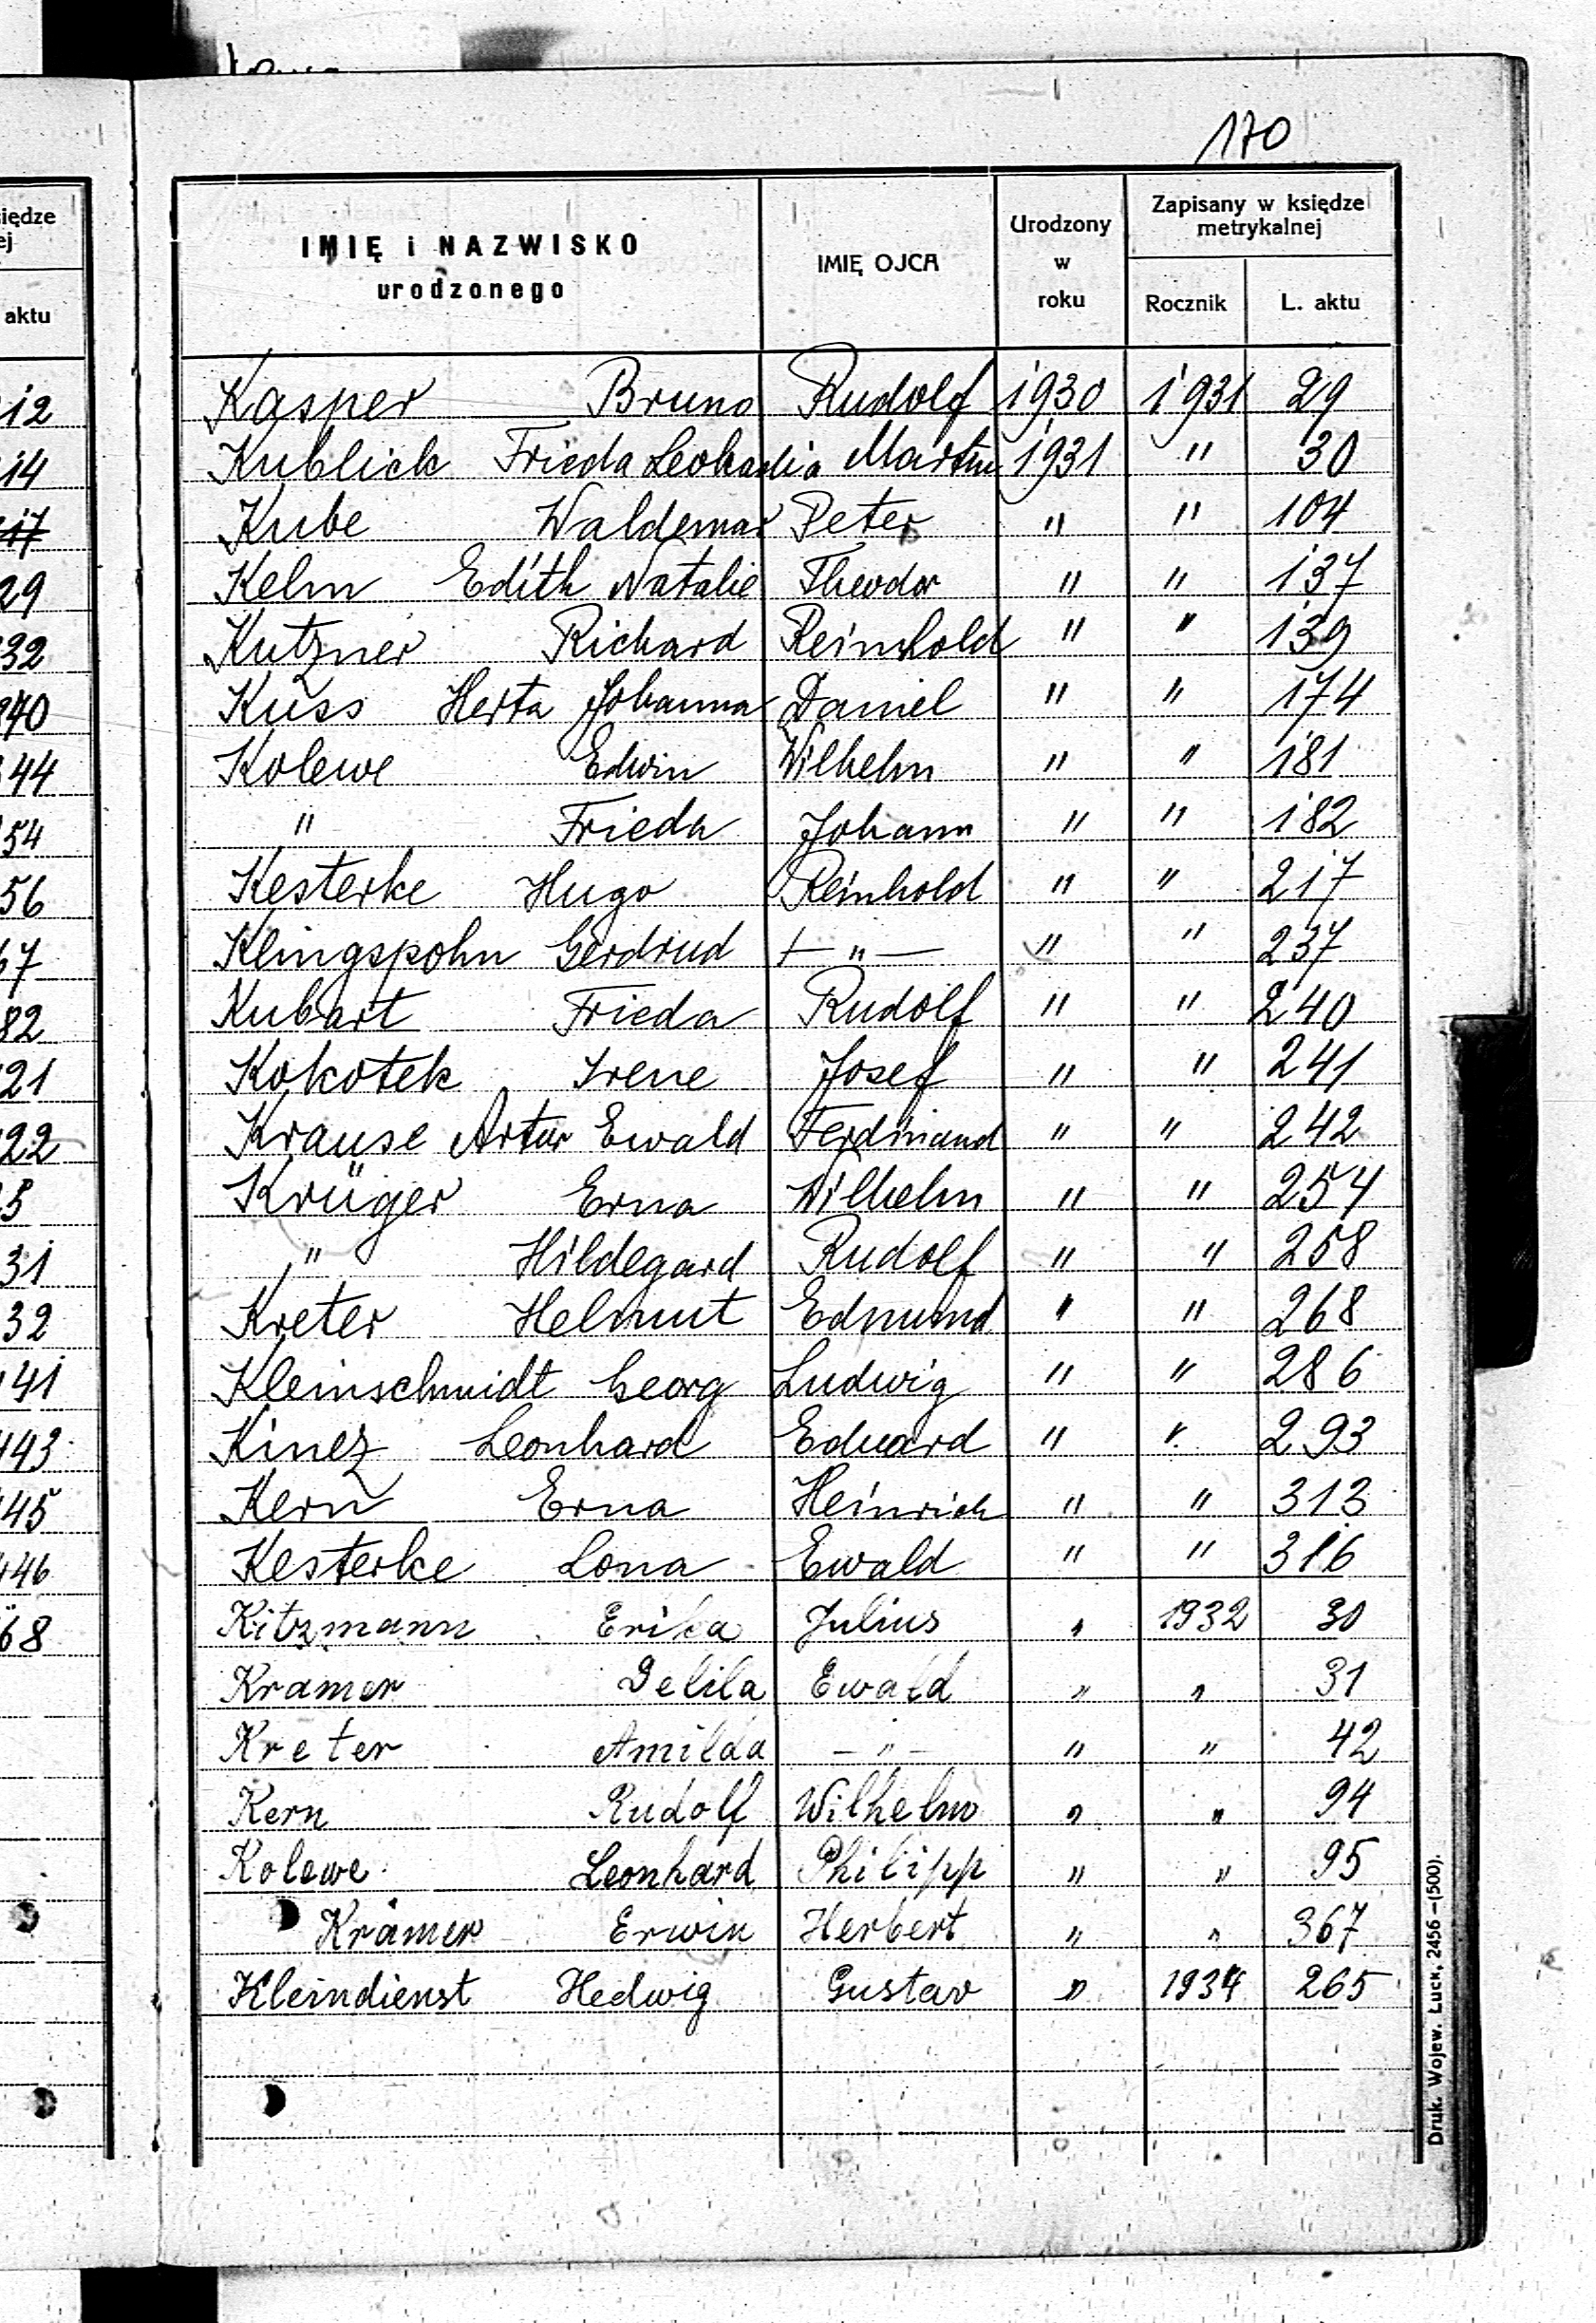 170
iędze
ej
aktu
IMIĘ i NAZWISKO
urodzonego
IMIĘ OJCA
Urodzony
w
roku
Zapisany w księdze
metrykalnej
Rocznik
L. aktu
12 Kasper Bruno Rudolf 1930 1931 29
14 Kublick Frieda Leokadia Martin 1931 " 30
17 Kube Waldemar Peter " " 104
29 Kelm Edith Natalie Theodor " " 137
32 Kutzner Richard Reinhold " " 139
40 Kuss Herta Johanna Daniel " " 174
44 Kolewe Edwin Wilhelm " " 181
54 " Frieda Johann " " 182
56 Kesterke Hugo Reinhold " " 217
67 Klingspohn Gerdrud — " — " " 237
82 Kubart Frieda Rudolf " " 240
21 Kokotek Irene Josef " " 241
22 Krause Artur Ewald Ferdinand " " 242
5 Krüger Erna Wilhelm " " 254
31 " Hildegard Rudolf " " 258
32 Kreter Helmut Edmund " " 268
41 Kleinschmidt Georg Ludwig " " 286
43 Kinez Leonhard Eduard " " 293
45 Kern Erna Heinrich " " 313
46 Kesterke Lona Ewald " " 316
68 Kitzmann Erika Julius " 1932 30
Kramer Delila Ewald " " 31
Kreter Amilda — " — " " 42
Kern Rudolf Wilhelm " " 94
Kolewe Leonhard Philipp " " 95
Krämer Erwin Herbert " " 367
Kleindienst Hedwig Gustav " 1934 265
Druk. Wojew. Łuck, 2456 – (500).